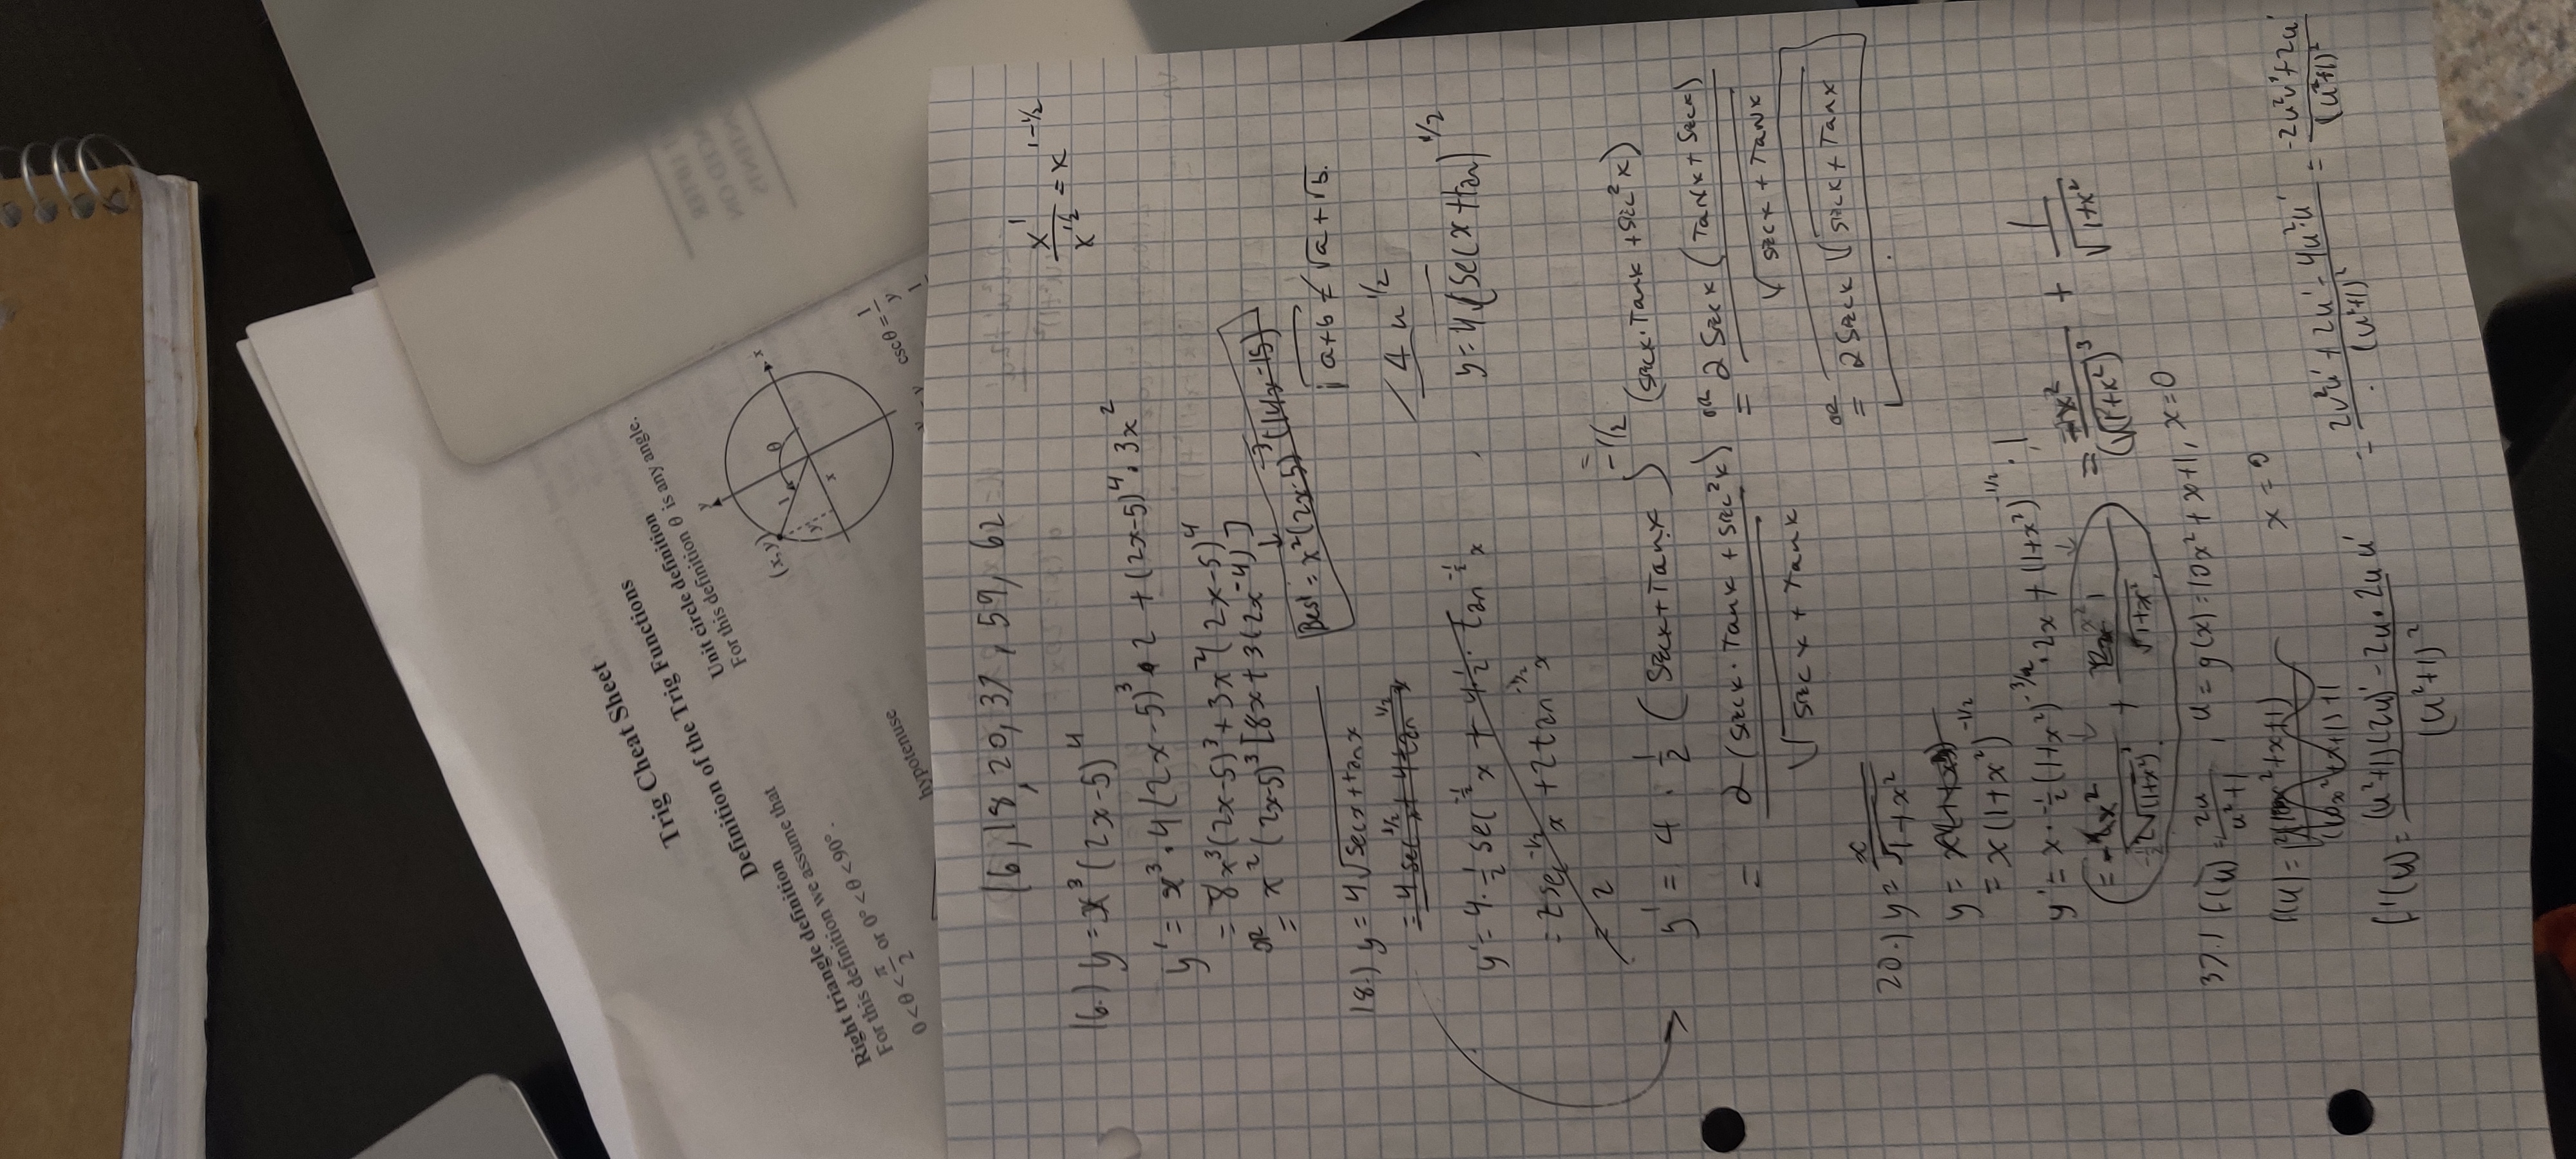 Trig Cheat Sheet
Definition of the Trig Functions
Right triangle definition
For this definition we assume that
0 < θ < π/2 or 0° < θ < 90° .
hypotenuse
Unit circle definition
For this definition θ is any angle.
y
x
(x, y)
1
θ
y
x
csc θ = 1/y
16, 18, 20, 37, 59, 62
x^1/x^1/2 = x^1-1/2
16.) y = x^3 (2x-5)^4
y' = x^3 · 4(2x-5)^3 · 2 + (2x-5)^4 · 3x^2
= 8x^3(2x-5)^3 + 3x^2(2x-5)^4
OR = x^2 (2x-5)^3 [8x + 3(2x-4)]
Best = x^2(2x-5)^3(14x-15)
√a+b ≠ √a + √b.
18.) y = 4√secx+tanx
= 4 sec^1/2 x + 4 tan^1/2 x
4 u^1/2
y' = 4 · 1/2 sec^-1/2 x + 4 · 1/2 · tan^-1/2 x
y = 4 (secx+tan)^1/2
= 2 sec^-1/2 x + 2 tan^-1/2 x
= 2
y' = 4 · 1/2 (secx + Tanx)^-1/2 (secx · Tanx + sec^2 x)
= 2 (secx · Tanx + sec^2 x) / √secx + Tanx
OR = 2 secx (Tanx + secx) / √secx + Tanx
OR = 2 secx √secx + Tanx
20.) y = x/√1+x^2
y =
= x(1+x^2)^-1/2
y' = x · -1/2 (1+x^2)^-3/2 · 2x + (1+x^2)^-1/2 · 1
= -x^2/(√1+x^2)^3 + 1/√1+x^2
37.) f(u) = 2u/u^2+1 , u = g(x) = 10x^2 + x + 1, x=0
x = 0
f(u) = 2(10x^2+x+1) / (10x^2+x+1)+1
f'(u) = (u^2+1)(2u)' - 2u · 2u u' / (u^2+1)^2
= 2u^2u' + 2u' - 4u^2·u' / (u^2+1)^2 = -2u^2u' + 2u' / (u^2+1)^2